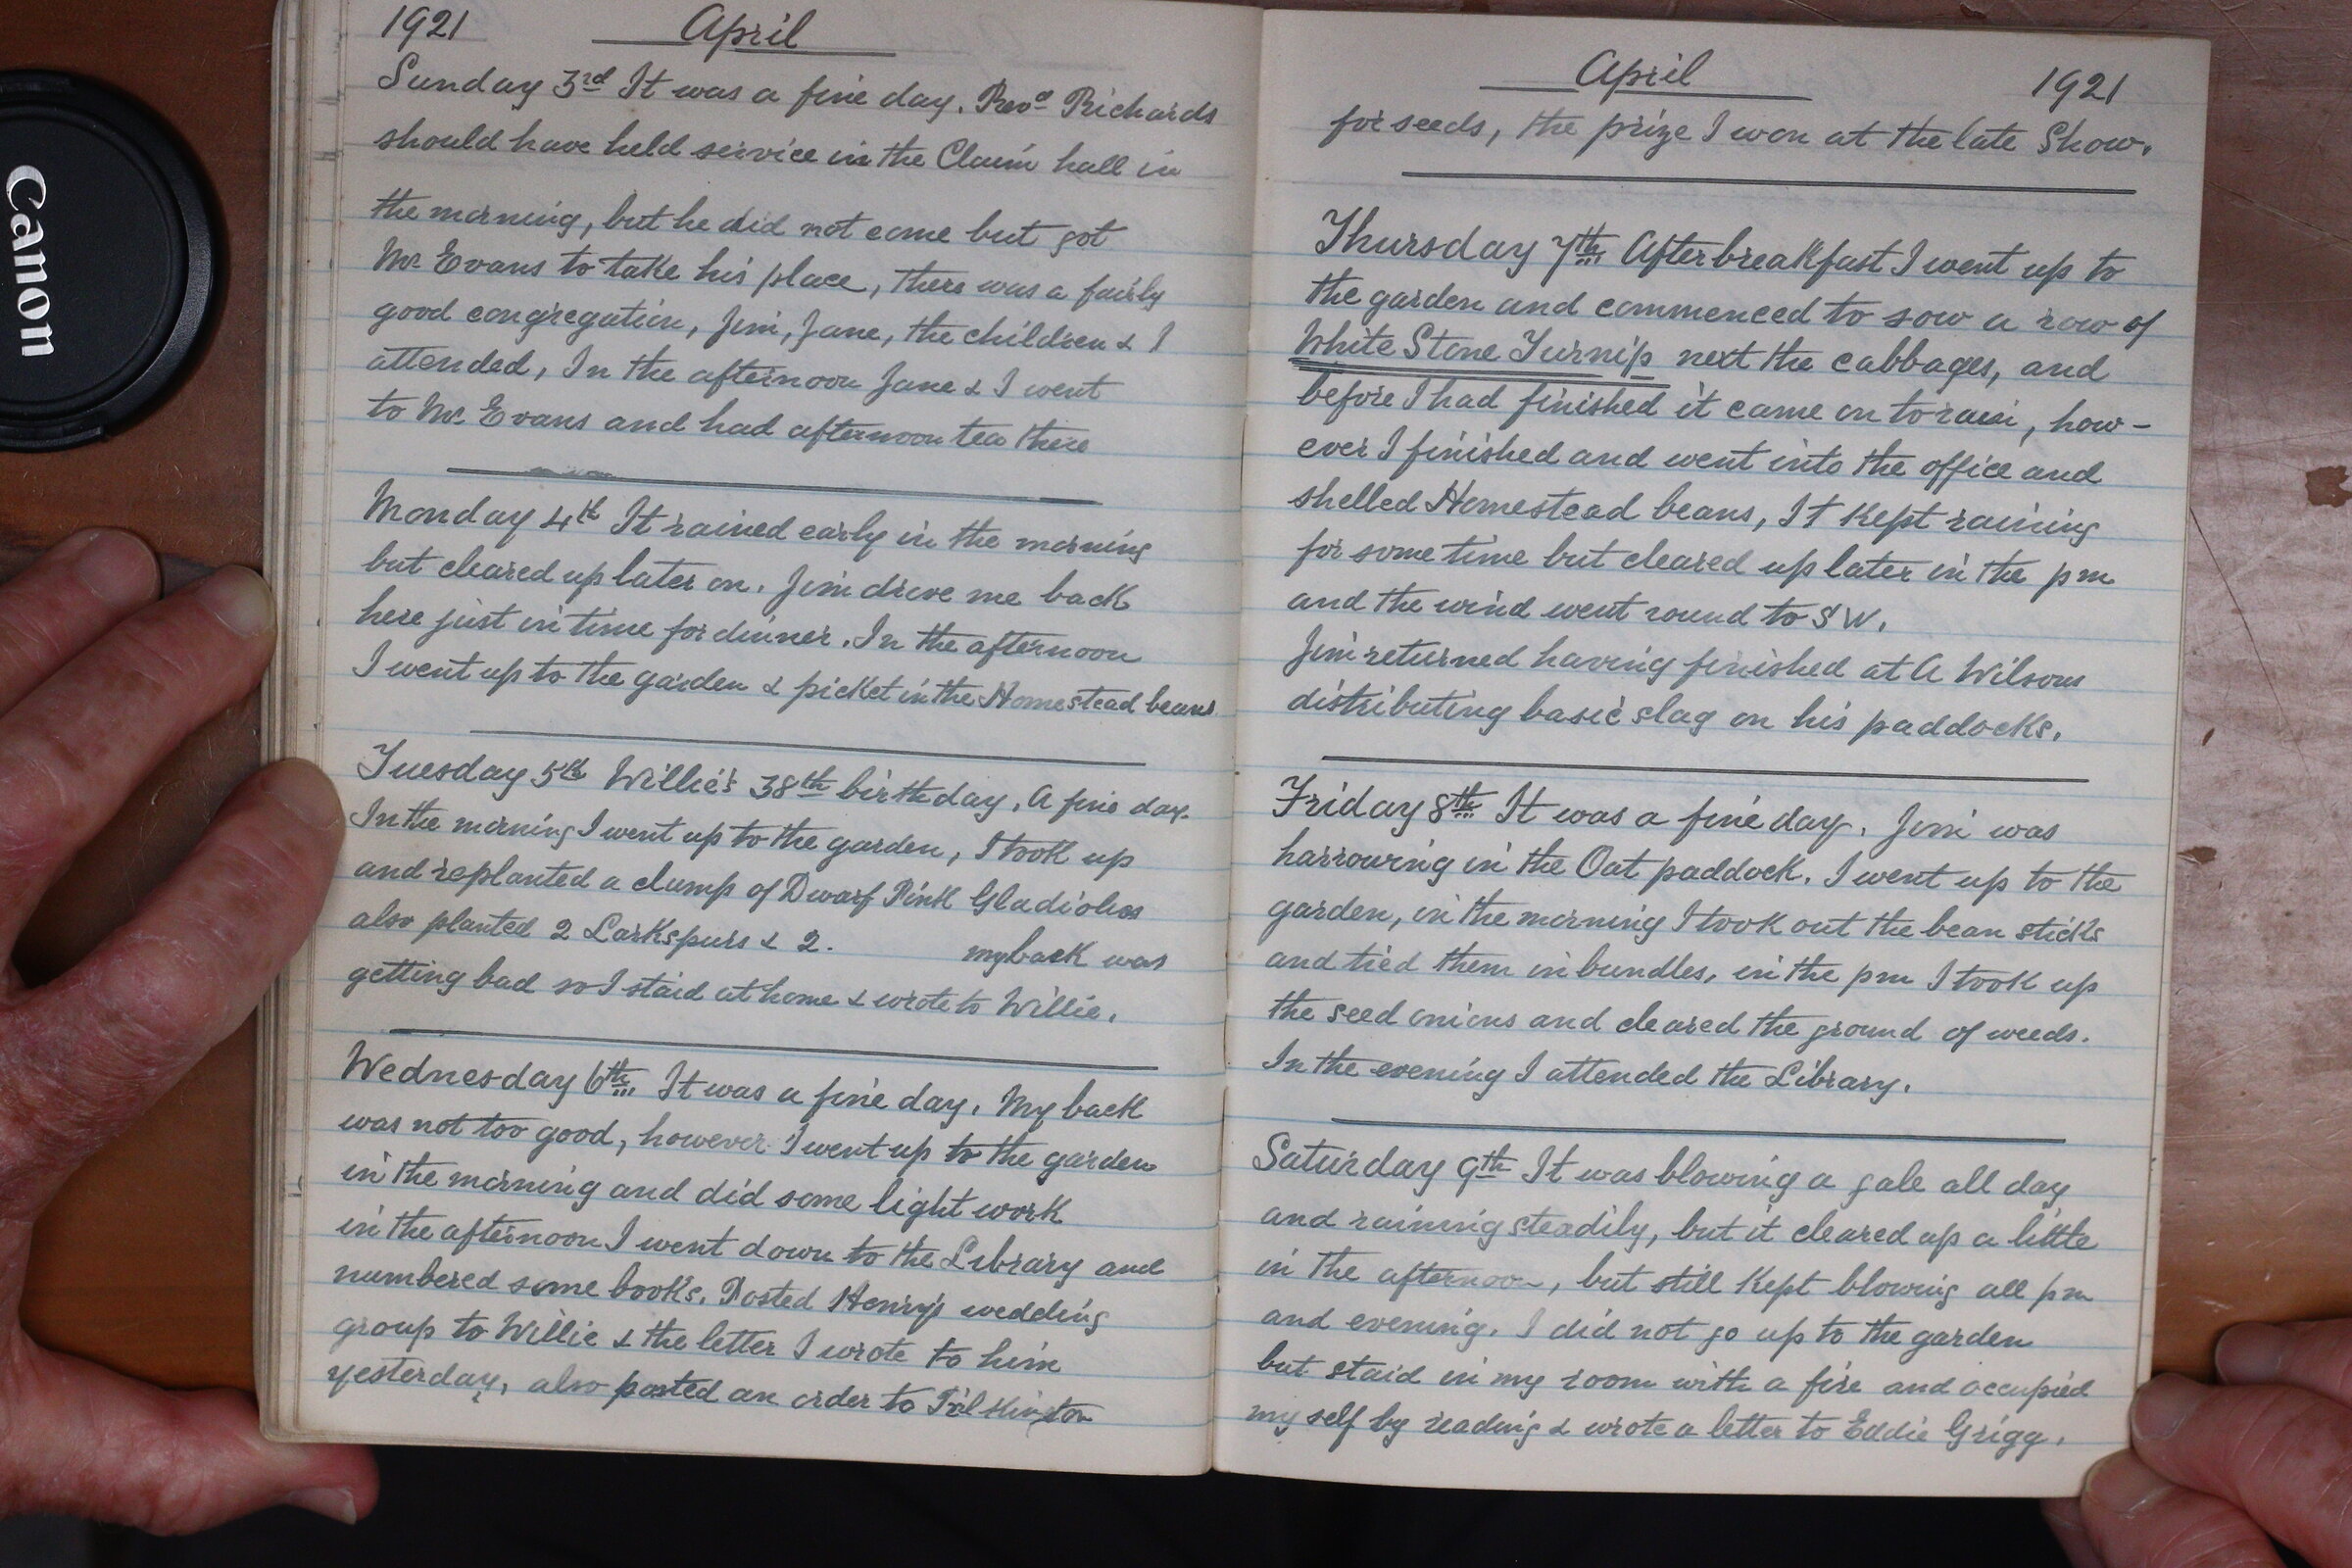 Canon
1921 April
Sunday 3rd It was a fine day. Revd Richards
should have held service in the Claim hall in
the morning, but he did not come but got
Mr Evans to take his place, there was a fairly
good congregation, Jim, Jane, the children & I
attended, In the afternoon Jane & I went
to Mr Evans and had afternoon tea there
Monday 4th It rained early in the morning
but cleared up later on. Jim drove me back
here just in time for dinner. In the afternoon
I went up to the garden & picket in the Homestead beans
Tuesday 5th Willie's 38th birthday. A fine day.
In the morning I went up to the garden, I took up
and replanted a clump of Dwarf Pink Gladiolus
also planted 2 Larkspurs & 2. my back was
getting bad so I staid at home & wrote to Willie.
Wednesday 6th It was a fine day. My back
was not too good, however I went up to the garden
in the morning and did some light work
in the afternoon I went down to the Library and
numbered some books. Posted Henry's wedding
group to Willie & the letter I wrote to him
yesterday, also posted an order to Pilkington
April 1921
for seeds, the prize I won at the late Show.
Thursday 7th After breakfast I went up to
the garden and commenced to sow a row of
White Stone Turnip next the cabbages, and
before I had finished it came on to rain, how-
ever I finished and went into the office and
shelled Homestead beans, It kept raining
for some time but cleared up later in the pm
and the wind went round to SW.
Jim returned having finished at A Wilsons
distributing basic slag on his paddocks.
Friday 8th It was a fine day. Jim was
harrowing in the Oat paddock. I went up to the
garden, in the morning I took out the bean sticks
and tied them in bundles, in the pm I took up
the seed onions and cleared the ground of weeds.
In the evening I attended the Library.
Saturday 9th It was blowing a gale all day
and raining steadily, but it cleared up a little
in the afternoon, but still kept blowing all pm
and evening. I did not go up to the garden
but staid in my room with a fire and occupied
my self by reading & wrote a letter to Eddie Grigg.